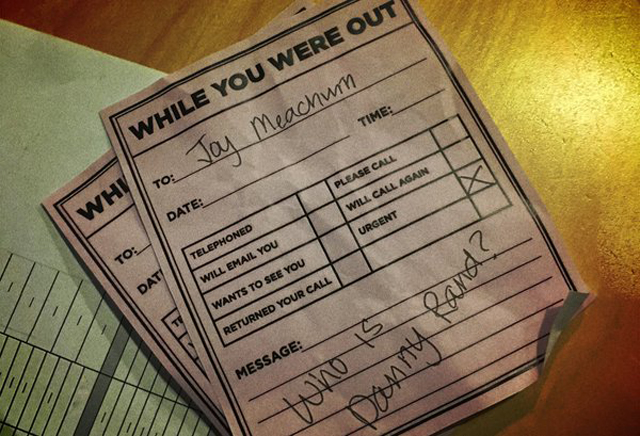 WHILE YOU WERE OUT
TO: Joy Meachum
DATE: TIME:
TELEPHONED PLEASE CALL
WILL EMAIL YOU WILL CALL AGAIN
WANTS TO SEE YOU URGENT
RETURNED YOUR CALL
MESSAGE: Who is
Danny Rand?
WHI
TO:
DAT